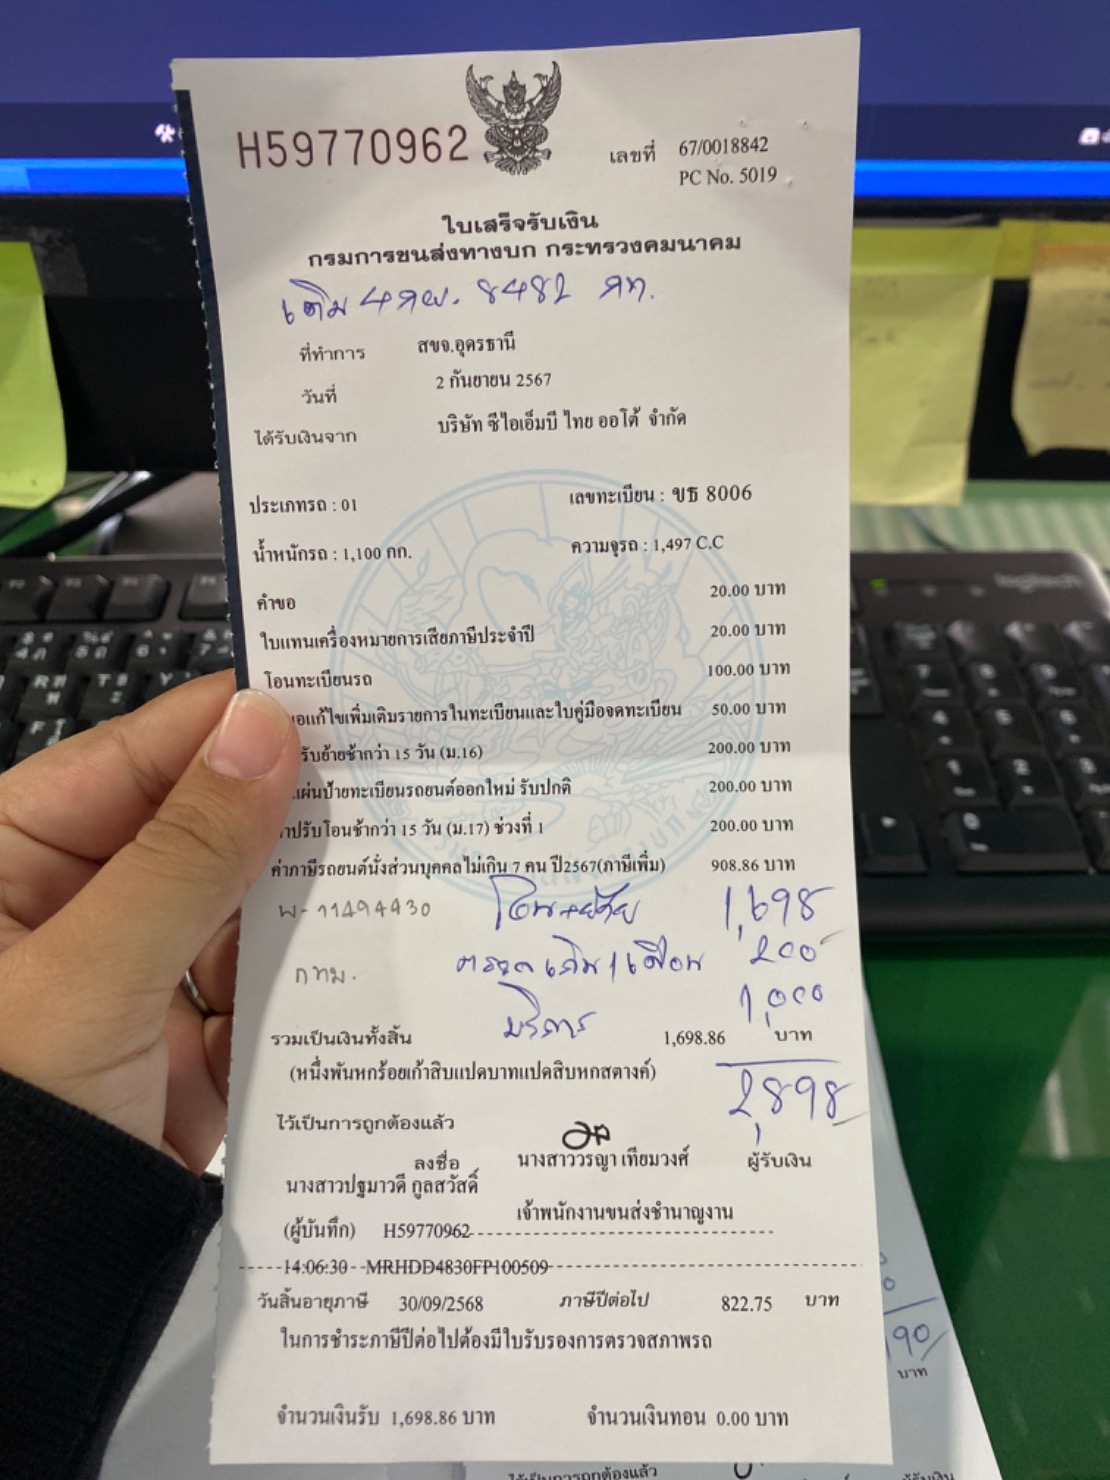 H59770962
เลขที่ 67/0018842
PC No. 5019
ใบเสร็จรับเงิน
กรมการขนส่งทางบก กระทรวงคมนาคม
เดิม 4กย. 8482 กท.
ที่ทำการ สขจ.อุดรธานี
วันที่ 2 กันยายน 2567
ได้รับเงินจาก บริษัท ซีไอเอ็มบี ไทย ออโต้ จำกัด
ประเภทรถ : 01 เลขทะเบียน : ขธ 8006
น้ำหนักรถ : 1,100 กก. ความจุรถ : 1,497 C.C
คำขอ 20.00 บาท
ใบแทนเครื่องหมายการเสียภาษีประจำปี 20.00 บาท
โอนทะเบียนรถ 100.00 บาท
ขอแก้ไขเพิ่มเติมรายการในทะเบียนและใบคู่มือจดทะเบียน 50.00 บาท
รับย้ายช้ากว่า 15 วัน (ม.16) 200.00 บาท
แผ่นป้ายทะเบียนรถยนต์ออกใหม่ รับปกติ 200.00 บาท
าปรับโอนช้ากว่า 15 วัน (ม.17) ช่วงที่ 1 200.00 บาท
ค่าภาษีรถยนต์นั่งส่วนบุคคลไม่เกิน 7 คน ปี2567(ภาษีเพิ่ม) 908.86 บาท
พ-11494430 โอน+ย้าย 1,698
กทม. ตรวจ เกิน 1 เดือน 200
บริการ 1,000
รวมเป็นเงินทั้งสิ้น 1,698.86 บาท
(หนึ่งพันหกร้อยเก้าสิบแปดบาทแปดสิบหกสตางค์) 2,898
ไว้เป็นการถูกต้องแล้ว
ลงชื่อ นางสาววรญา เทียมวงศ์ ผู้รับเงิน
นางสาวปฐมาวดี กูลสวัสดิ์
เจ้าพนักงานขนส่งชำนาญงาน
(ผู้บันทึก) H59770962
14:06:30 MRHDD4830FP100509
วันสิ้นอายุภาษี 30/09/2568 ภาษีปีต่อไป 822.75 บาท
ในการชำระภาษีปีต่อไปต้องมีใบรับรองการตรวจสภาพรถ
จำนวนเงินรับ 1,698.86 บาท จำนวนเงินทอน 0.00 บาท
90
บาท
ไว้เป็นการถูกต้องแล้ว
ผู้รับเงิน
logitech